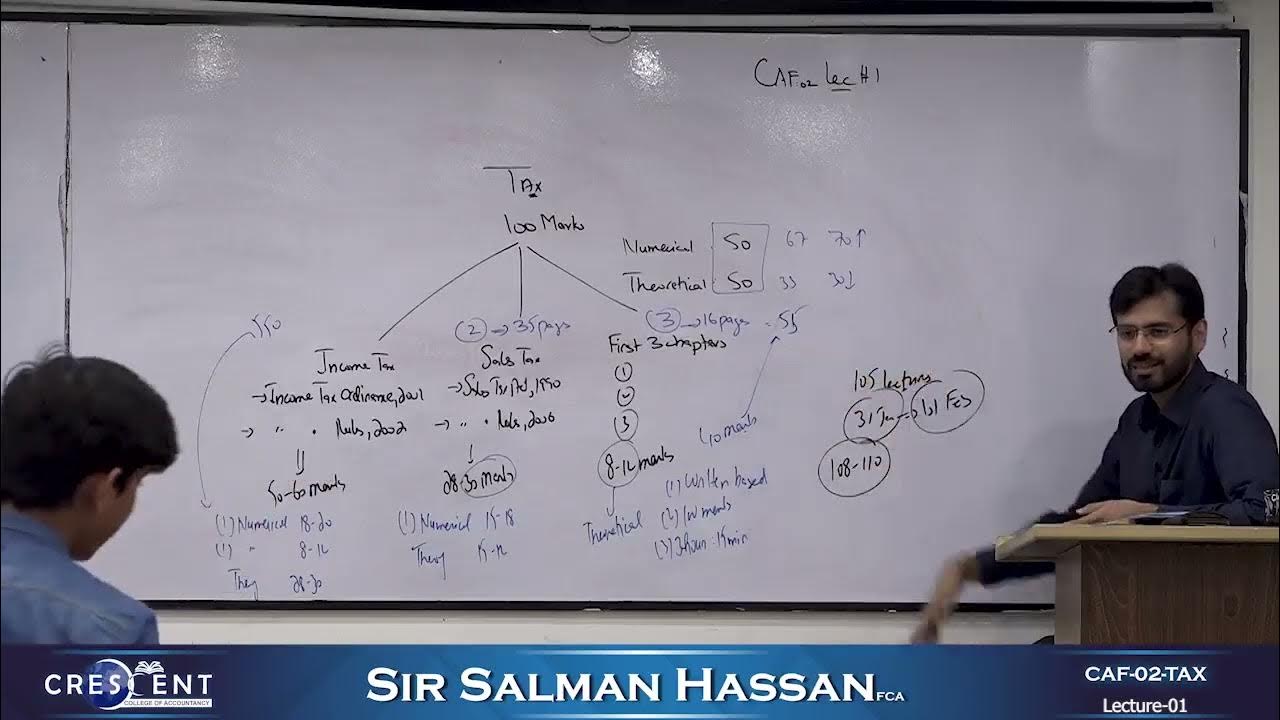 CAF02 Lec #1
Tax
100 Marks
Numerical 50 67 70↑
Theoretical 50 33 30↓
(2) → 35 pages
(3) → 16 pages = 55
550
Income Tax
→ Income Tax Ordinance, 2001
→ " " Rules, 2002
50-60 marks
(1) Numerical 18-20
(1) " 8-12
Theory 28-30
Sales Tax
→ Sales Tax Act, 1990
→ " " Rules, 2006
28-30 marks
(1) Numerical 15-18
Theory
First 3 chapters
1
2
3
8-12 marks
Theoretical
marks
(1) Written based
(2) 100 marks
(3) 3 hour : 15 min
105 lectures
31 Jan → 1st Feb
108-110
CRESCENT
COLLEGE OF ACCOUNTANCY
SIR SALMAN HASSAN FCA
CAF-02-TAX
Lecture-01